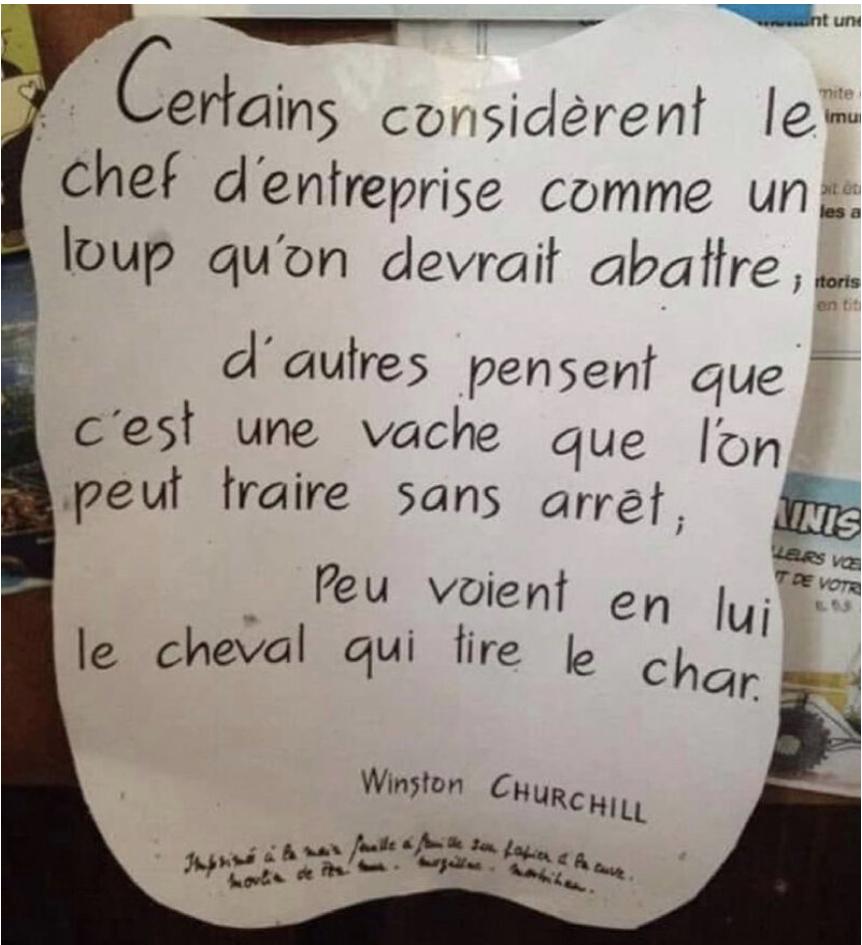 Certains considèrent le
chef d'entreprise comme un
loup qu'on devrait abattre;
d'autres pensent que
c'est une vache que l'on
peut traire sans arrêt;
Peu voient en lui
le cheval qui tire le char.
Winston CHURCHILL
Imprimé à la main feuille à feuille sur papier à la cuve.
Moulin de
Morbihan.
nt une
mite
imu
oit êt
les a
toris
en tit
INIS
LLEURS VŒ
T DE VOTR